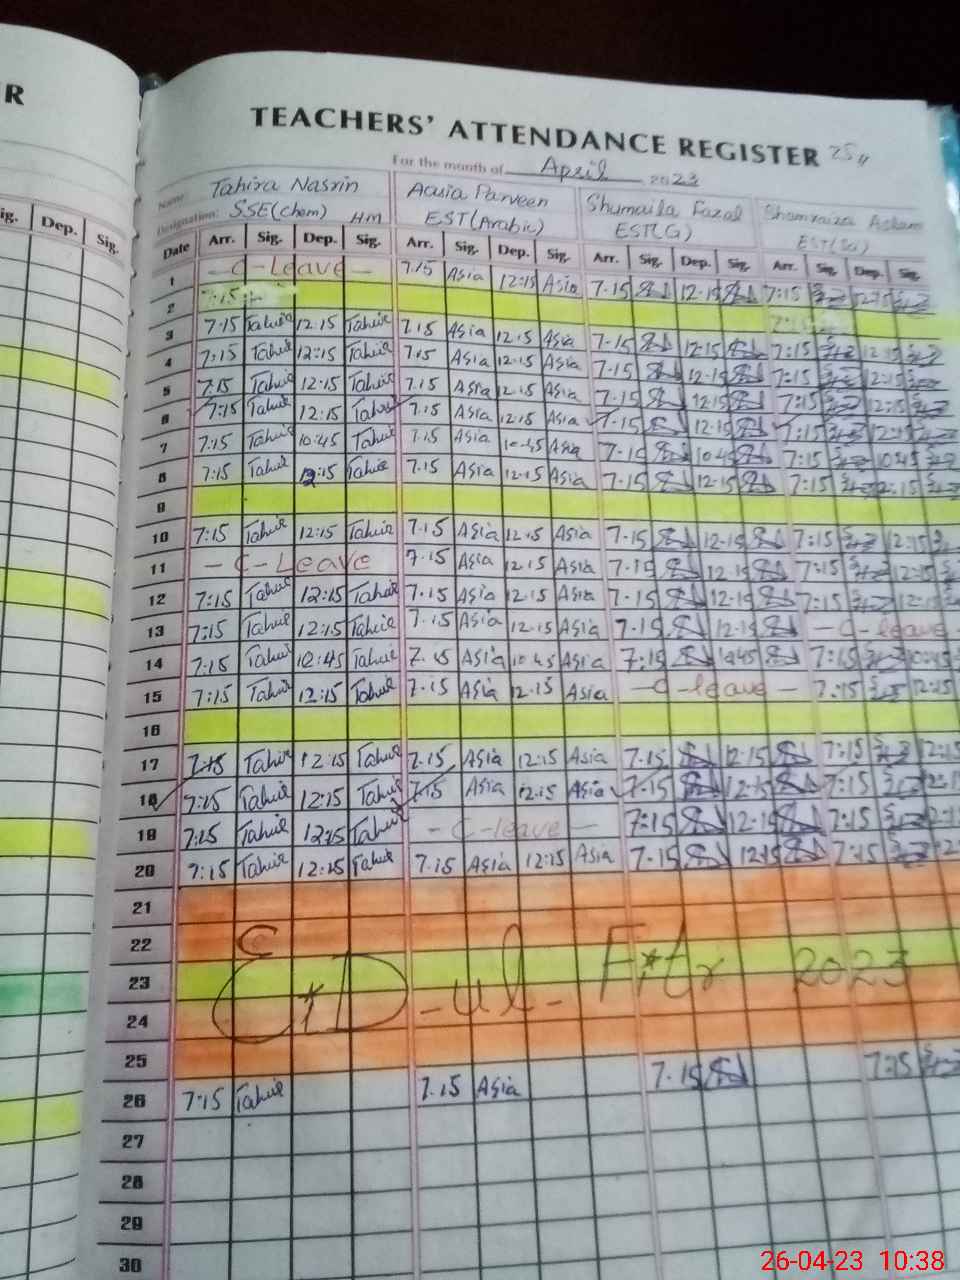 R
TEACHERS' ATTENDANCE REGISTER
For the month of April 2023
Name: Tahira Nasrin Aasia Parveen Shumaila Fazal
Designation: SSE(chem) HM EST(Arabic) EST(G)
ig. Dep. Sig. Date Arr. Sig. Dep. Sig. Arr. Sig. Dep. Sig. Arr. Sig. Dep. Sig. Arr. Sig. Dep. Sig.
1 - C - Leave - 7.15 Asia 12:15 Asia 7-15 12-15 7:15 12:15
2 7:15
3 7:15 Tahir 12.15 Tahir 7.15 Asia 12.15 Asia 7-15 12-15 7:15 12:15
4 7:15 Tahir 12:15 Tahir 7.15 Asia 12.15 Asia 7-15 12-15 7:15 12:15
5 7:15 Tahir 12:15 Tahir 7.15 Asia 12.15 Asia 7-15 12-15 7:15 12:15
6 7:15 Tahir 12:15 Tahir 7.15 Asia 12.15 Asia 7-15 12-15 7:15 12:15
7 7:15 Tahir 10:45 Tahir 7.15 Asia 10.45 Asia 7-15 10.45 7:15 10:45
8 7:15 Tahir 12:15 Tahir 7.15 Asia 12.15 Asia 7-15 12-15 7:15 12:15
9
10 7:15 Tahir 12:15 Tahir 7.15 Asia 12.15 Asia 7-15 12-15 7:15 12:15
11 - C - Leave 7.15 Asia 12.15 Asia 7-15 12-15 7:15 12:15
12 7:15 Tahir 12:15 Tahir 7.15 Asia 12.15 Asia 7-15 12-15 7:15 12:15
13 7:15 Tahir 12:15 Tahir 7.15 Asia 12.15 Asia 7-15 12-15 - C - leave -
14 7:15 Tahir 10:45 Tahir 7.15 Asia 10.45 Asia 7:15 10:45 7:15 10:45
15 7:15 Tahir 12:15 Tahir 7.15 Asia 12.15 Asia - C - leave - 7:15 12:15
16
17 7:15 Tahir 12:15 Tahir 7.15 Asia 12:15 Asia 7-15 12-15 7:15 12:15
18 7:15 Tahir 12:15 Tahir 7.15 Asia 12.15 Asia 7-15 12-15 7:15 12:15
19 7:15 Tahir 12:15 Tahir - C - leave - 7:15 12-15 7:15 12:15
20 7:15 Tahir 12:15 Tahir 7.15 Asia 12:15 Asia 7-15 12-15 7:15
21
22
23 EID - ul - Fitr 2023
24
25
26 7:15 Tahir 7.15 Asia 7-15 7:15
27
28
29
30
26-04-23 10:38